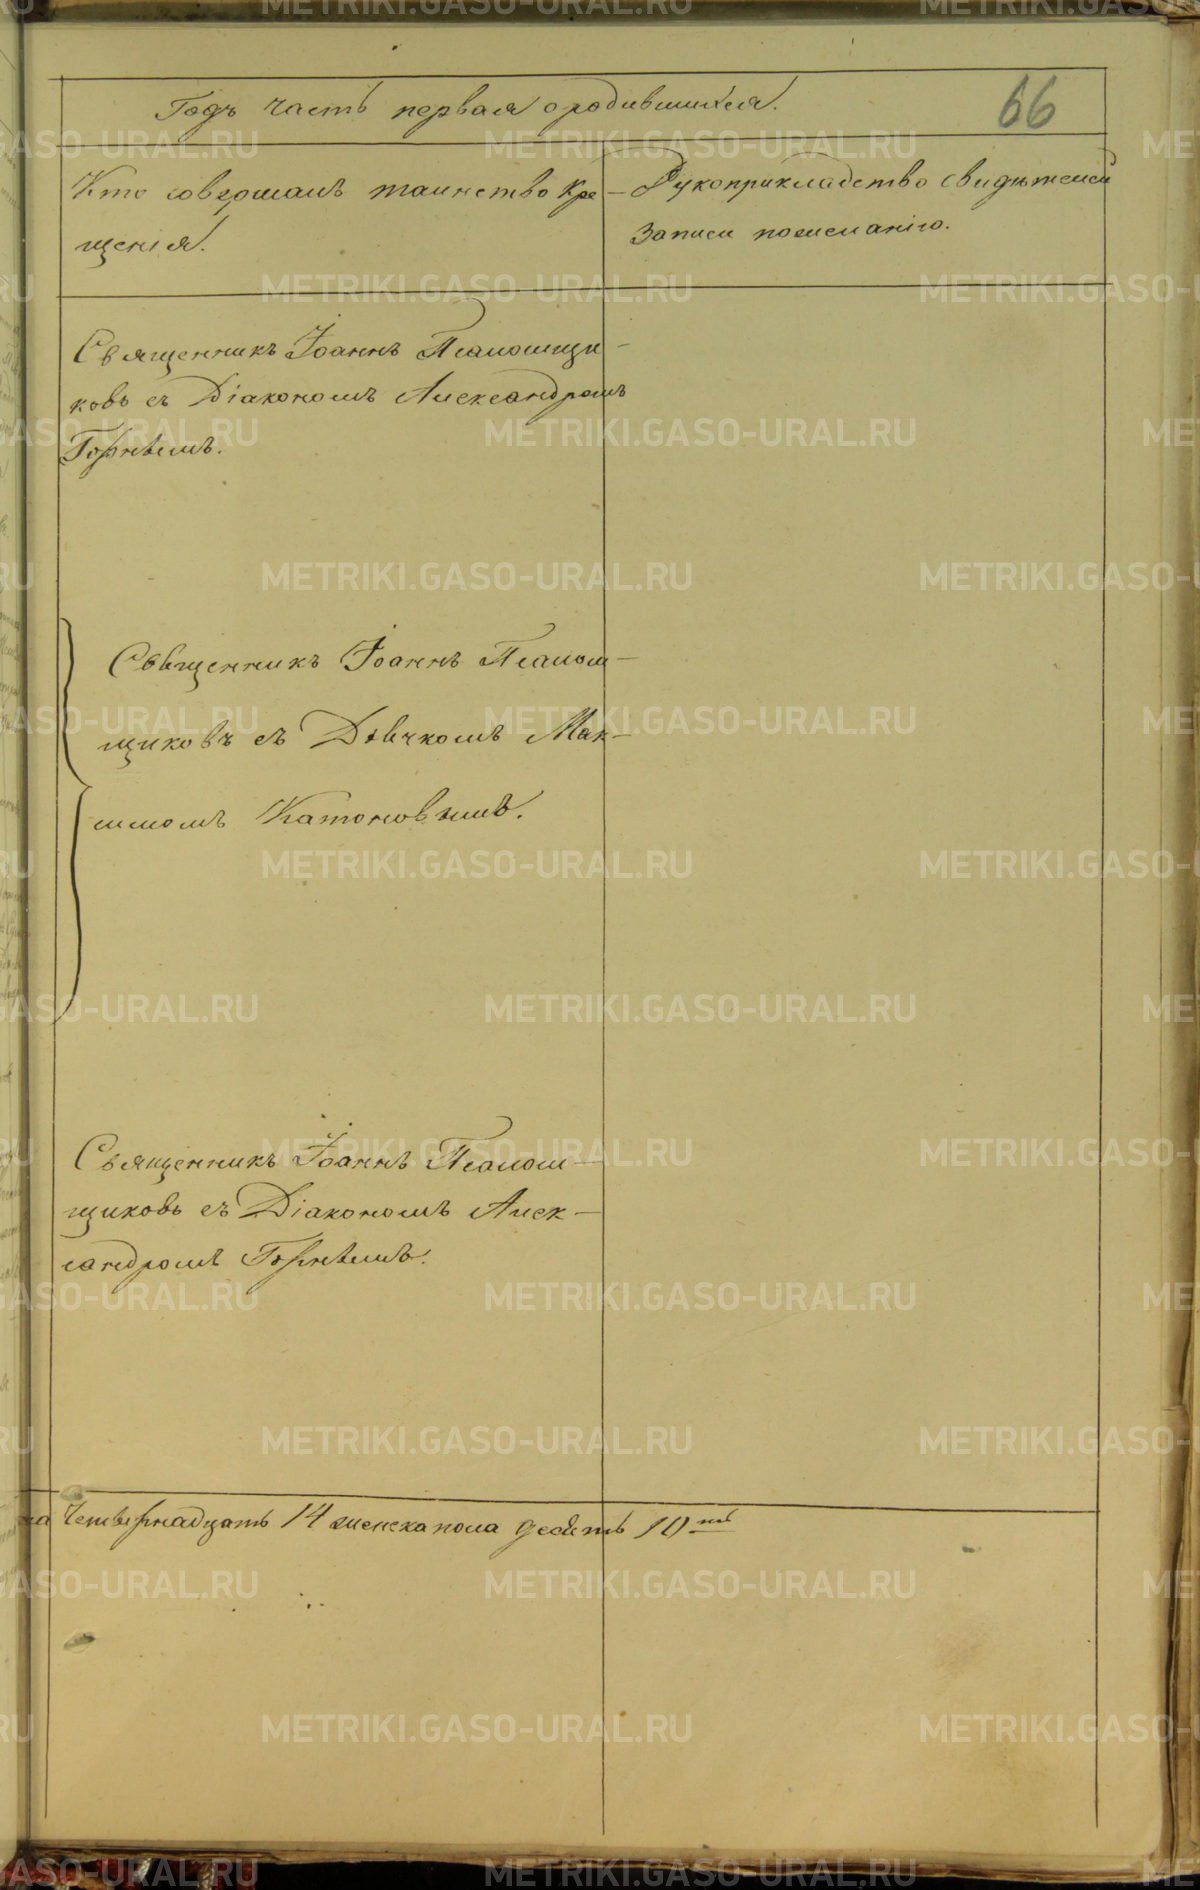 Годъ часть первая о родившихся.
66
Кто совершалъ таинство кре-
щенія.
Рукоприкладство свидѣтелей
записи по желанію.
Священникъ Іоаннъ Псаломщи-
ковъ съ Діакономъ Александромъ
Горнѣмъ.
Священникъ Іоаннъ Псалом-
щиковъ съ Дьячкомъ Мак-
симомъ Катоновымъ.
Священникъ Іоаннъ Псалом-
щиковъ съ Діакономъ Алек-
сандромъ Горнѣмъ.
на четвернадцать 14 женска пола десять 10ть
METRIKI.GASO-URAL.RU